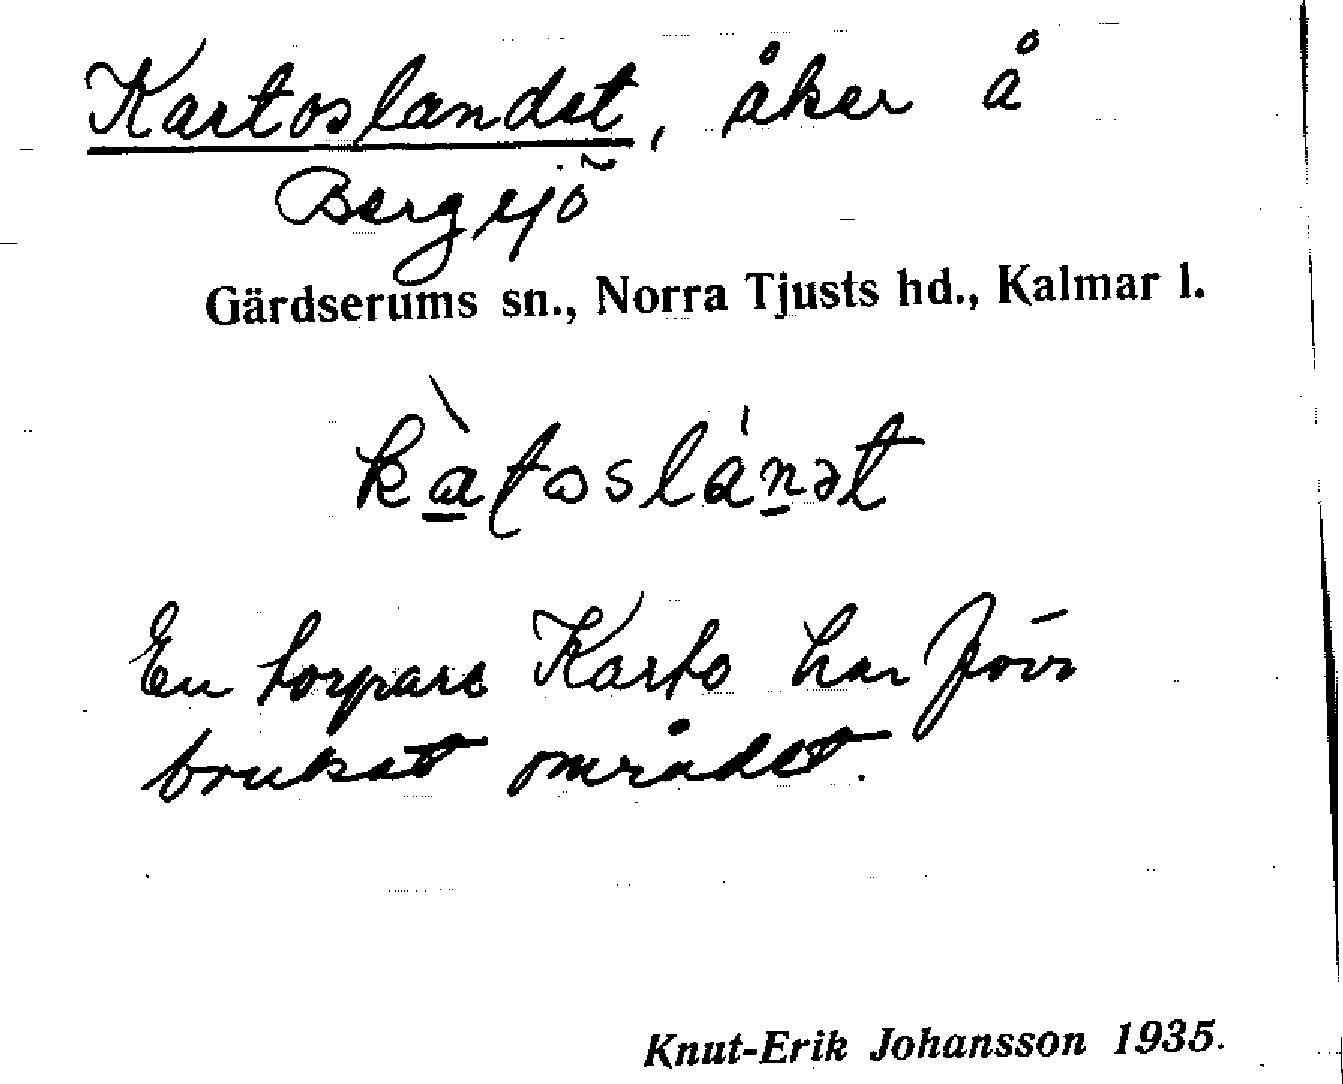 Kartoslandet, åker å
Bergsjö
Gärdserums sn., Norra Tjusts hd., Kalmar l.
kà̱toslánət
En torpare Karto har förr
brukat området.
Knut-Erik Johansson 1935.